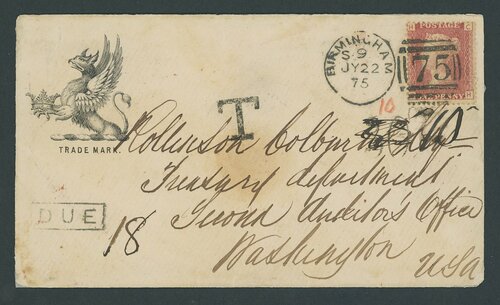 BIRMINGHAM
S 9
JY 22
75
POSTAGE
75
PENNY
T
10
TRADE MARK.
Rollinson Colburn Esq
Treasury department
Second Auditor's Office
Washington
USA
DUE
18